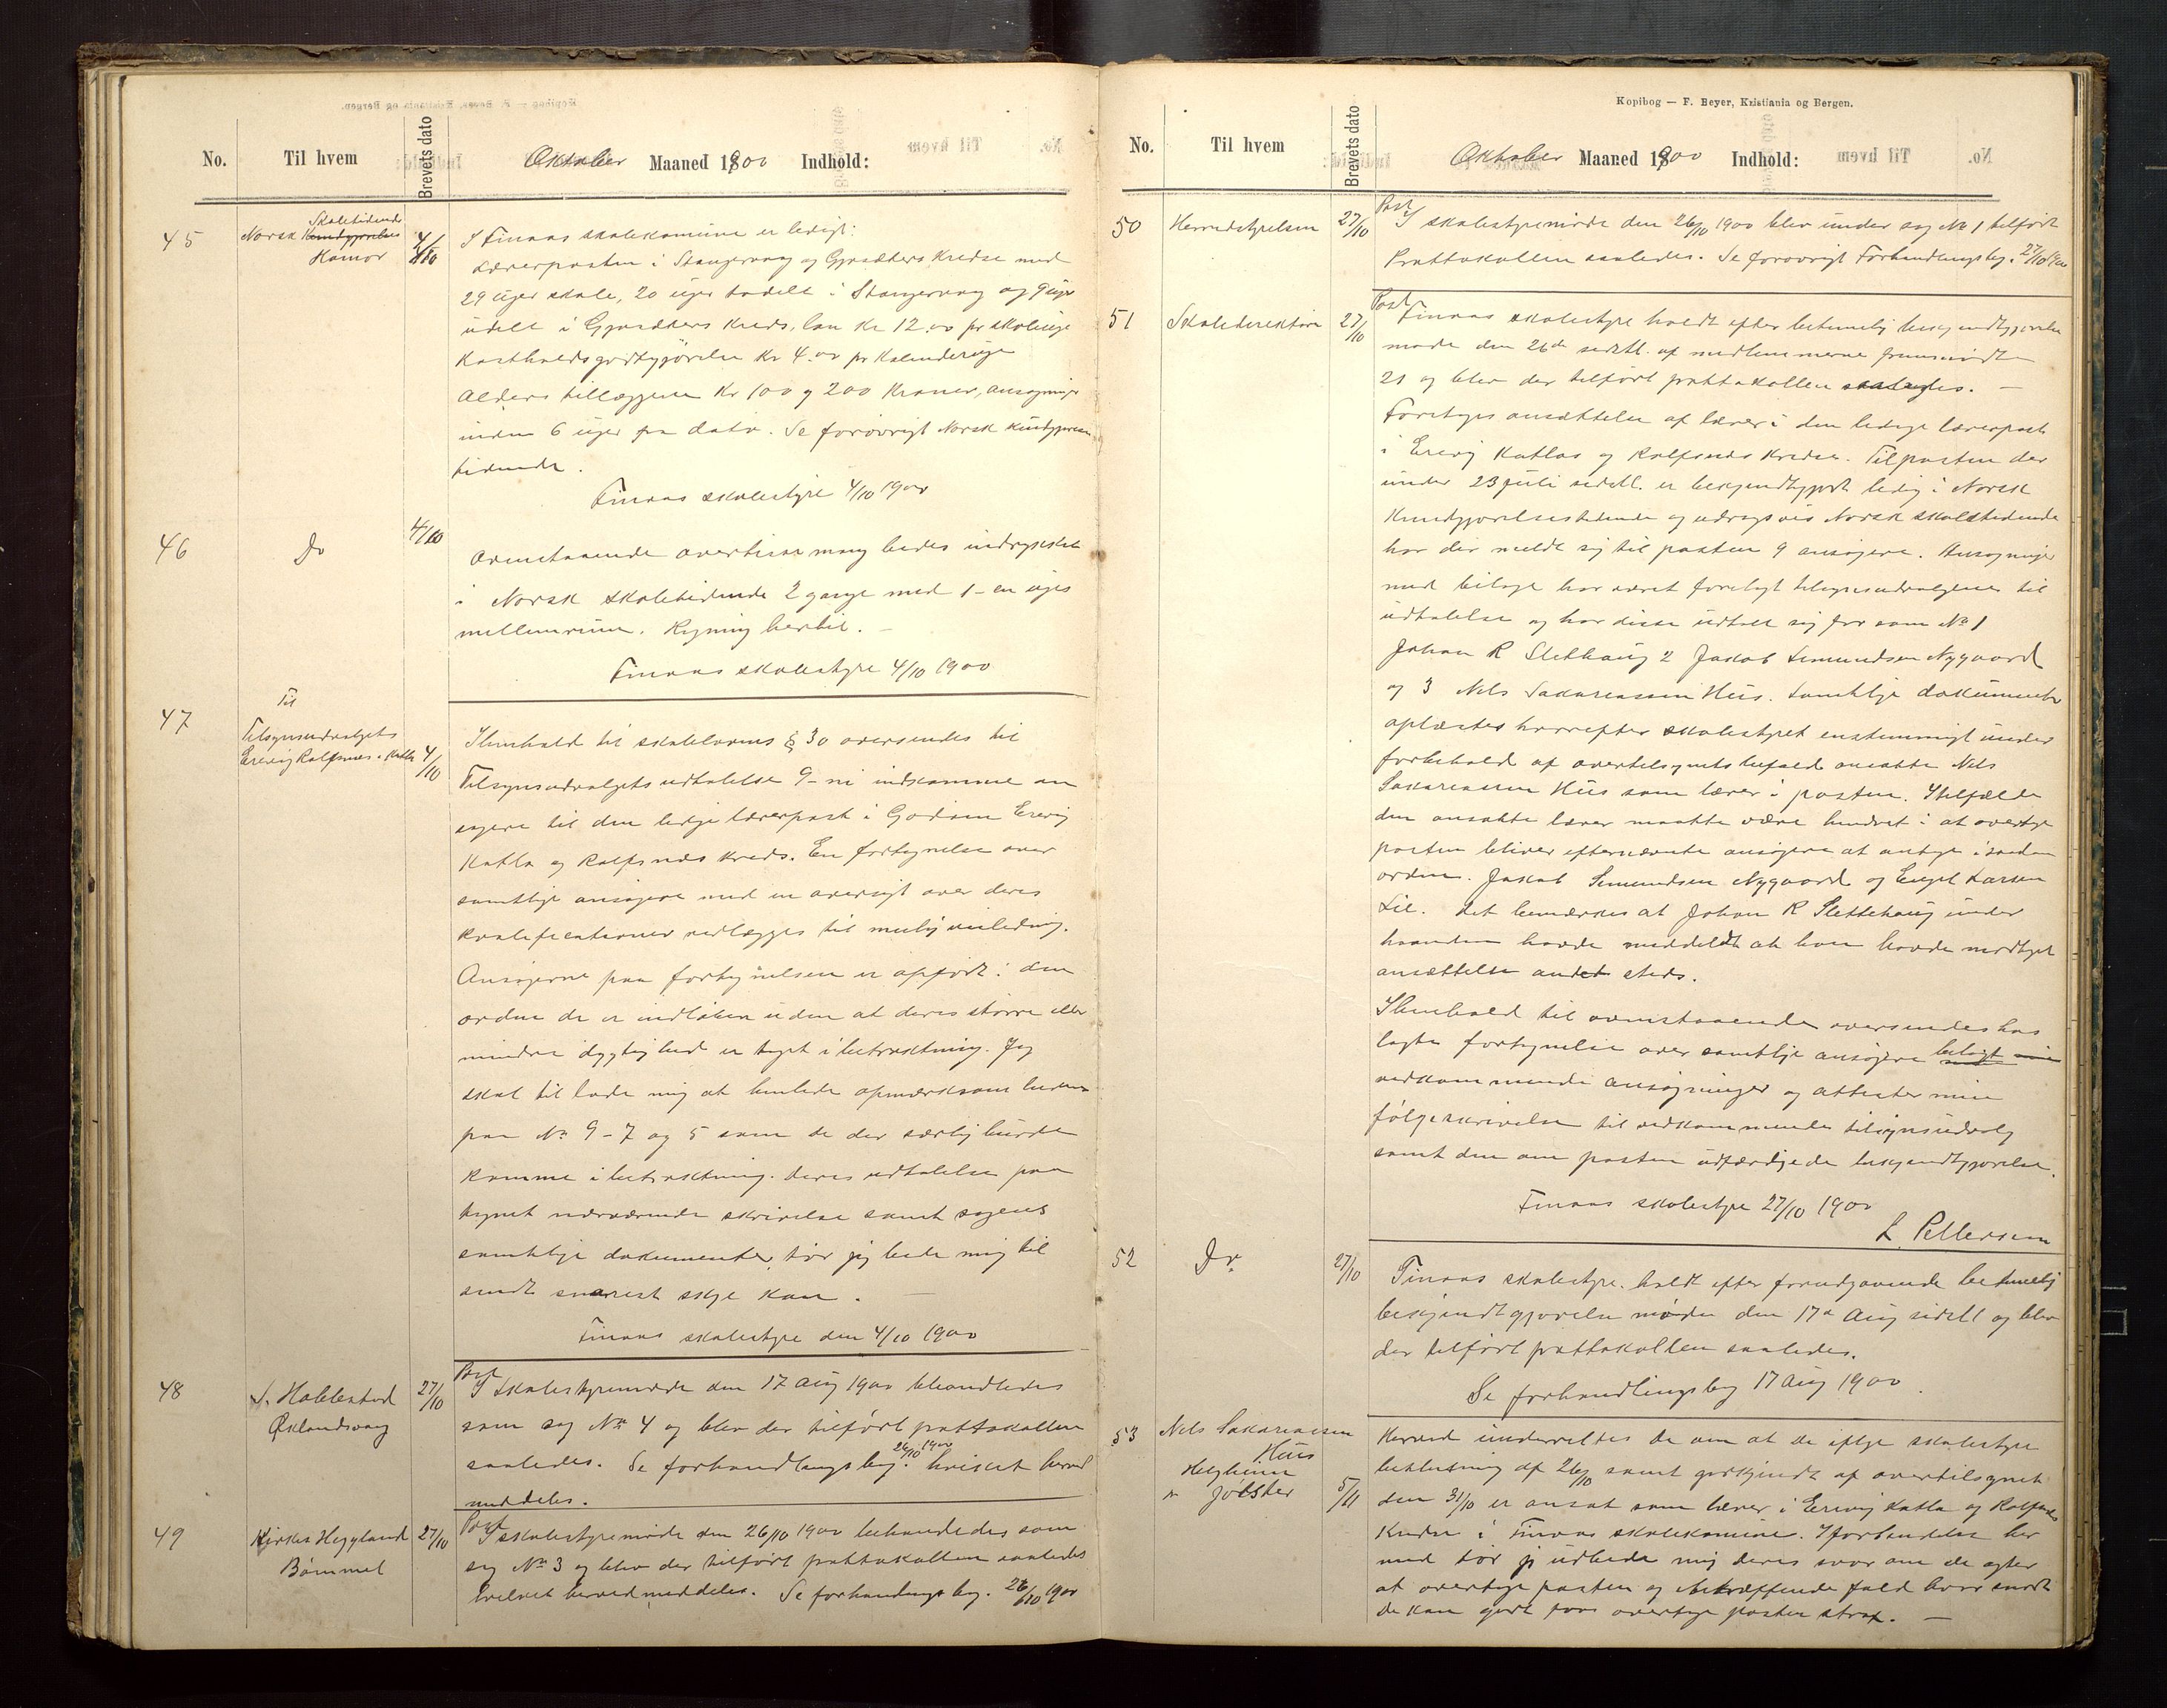 No. Til hvem Brevets dato Oktober Maaned 1900 Indhold:
45 Norsk Skoletidende Kundgjørelses 4/10
Hamar
I Finaas skolekomune er ledigt:
Lærerposten i Stangervaag og Gjosæters Kredse med
29 uger skole, 20 uger todelt i Stangervaag og 9 uger
udelt i Gjosæters Kreds, løn Kr 12.00 pr skoleuge
Kostholdsgodtgjørelse Kr 4.00 pr Kalenderuge
Alders tillæggene Kr 100 og 200 Kroner, ansøgninger
inden 6 uger fra dato. Se forøvrigt Norsk Kundgjørelses
tidende.
Finaas skolestyre 4/10 1900
46 Do 4/10
Ovenstaaende avertissemang bedes indrykket
i Norsk Skoletidende 2 gange med 1 - en uges
mellemrum. Regning hertil. —
Finaas skolestyre 4/10 1900
47 Til
Tilsynsudvalgets
Erevig Rolfsnes & Katla 4/10
Ihenhold til skolelovens § 30 oversendes til
Tilsynsudvalgets udtalelse 9 - ni indkomme an
søgere til den ledige lærerpost i Erevig
Katla og Rolfsnæs Kreds. En fortegnelse over
samtlige ansøgere med en oversigt over deres
kvalificationer vedlægges til mulig veiledning.
Ansøgerne paa fortegnelsen er opført i den
orden de er indløben uden at deres større eller
mindre dygtighed er taget i betraktning. Jeg
skal til lade mig at henlede opmærksomheden
paa No 9 - 7 og 5 som de der særlig burde
komme i betraktning. Deres udtalelse paa
tegnet nærværende skrivelse samt sagens
samtlige dokumenter, tør jeg bede mig til
sendt snarest skje kan. —
Finaas skolestyre den 4/10 1900
48 Økslandsvaag 27/10
Post
I Skolestyremøde den 17 Aug 1900 behandledes
som sag No 4 og blev der tilført prottokollen
saaledes. Se forhandlingsbog. 26/10 1900 hvilket herved
meddeles.
49 Kirken Heggland 27/10
Bømmel
Post
I skolestyremøde den 26/10 1900 behandledes som
sag No 3 og blev der tilført prottokollen saaledes
hvilket herved meddeles. Se forhandlingsbog. 26/10 1900
Kopibog — F. Beyer, Kristiania og Bergen.
No. Til hvem Brevets dato Oktober Maaned 1900 Indhold:
50 Herredstyrelsen 27/10
Post
I skolestyremøde den 26/10 1900 blev under sag No 1 tilført
Prottokollen saaledes. Se forøvrigt Forhandlingsbog. 27/10 1900
51 Skoledirektøren 27/10
Post
Finaas skolestyre holdt efter betimelig bekjendtgjørelse
møde den 26de sidstl. af medlemmerne fremmødte
21 og blev der tilført prottokollen saaledes. —
Foretages ansættelse af lærer i den ledige lærerpost
i Erevig Katlas og Rolfsnæs Kredse. Til posten der
under 23 juli sidstl. er bekjendtgjort ledig i Norsk
Kundgjørelsestidende og udtogsvis Norsk skoletidende
har der meldt sig til posten 9 ansøgere. Ansøgninger
med bilage har været forelagt tilsynsudvalgene til
udtalelse og har disse udtalt sig for som No 1
Johan R Slettehaug 2 Jakob Simundsen Nygaard
og 3 Nels Sakariassen Hus. Samtlige dokumenter
oplæstes hvorefter skolestyret enstemmigt under
forbehold af overtilsynets bifald ansatte Nels
Sakariassen Hus som lærer i posten. I tilfælde
den ansatte lærer maatte være hindret i at overtage
posten bliver efternævnte ansøgere at antage i saadan
orden. Jakob Simundsen Nygaard og Engel Larsen
Lie. Det bemærkes at Johan R Slettehaug under
haanden havde meddeldt at han havde modtaget
ansættelse andet steds.
Ihenhold til ovenstaaende oversendes hos
lagte fortegnelse over samtlige ansøgere bilagt
vedkommende ansøgninger og attester min
følgeskrivelse til vedkommende tilsynsudvalg
samt den om posten udfærdigede bekjendtgjørelse.
Finaas skolestyre 27/10 1900
L. Pettersen
52 Do. 27/10
Finaas skolestyre holdt efter forudgaaende betimelig
bekjendtgjørelse møde den 17de Aug sidstl og blev
der tilført prottokollen saaledes.
Se forhandlingsbog 17 Aug 1900.
53 Nels Sakariassen
Hus
Helgheim
Jølster 5/11
Herved underrettes De om at De ifølge skolestyre
beslutning af 26/10 samt godkjendt af overtilsynet
den 31/10 er ansat som lærer i Erevig Katla og Rolfsnæs
Kredse i Finaas skolekomune. I forbindelse her
med tør jeg udbede mig deres svar om De agter
at overtage posten og ibekræftende fald hvor snart
De kan godt faar overtage posten straks. —